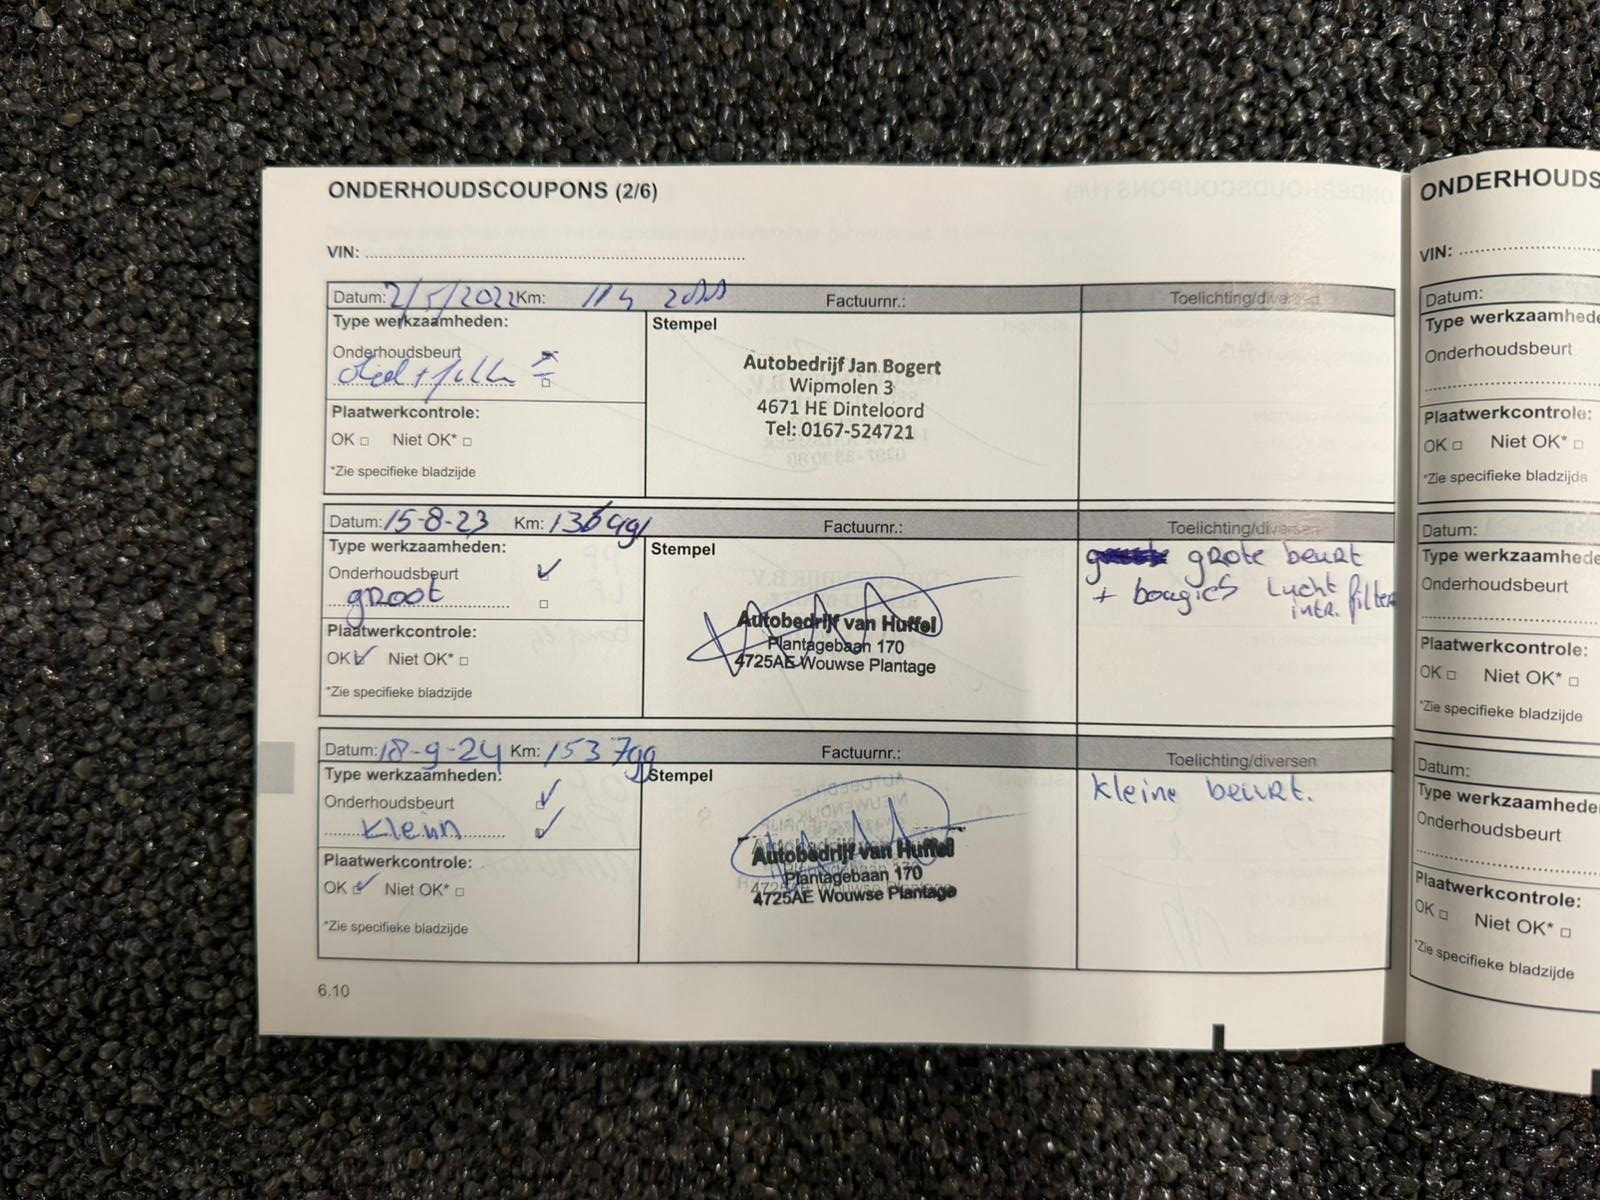 ONDERHOUDSCOUPONS (2/6)
VIN:
Datum: 2/5/2022 Km: Factuurnr.: Toelichting/diversen
Type werkzaamheden: Stempel
Onderhoudsbeurt
Plaatwerkcontrole:
OK Niet OK*
*Zie specifieke bladzijde
Autobedrijf Jan Bogert
Wipmolen 3
4671 HE Dinteloord
Tel: 0167-524721
Datum: 15-8-23 Km: Factuurnr.: Toelichting/diversen
Type werkzaamheden: Stempel
Onderhoudsbeurt
groot
Plaatwerkcontrole:
OK Niet OK*
*Zie specifieke bladzijde
Autobedrijf van Huffel
Plantagebaan 170
4725AE Wouwse Plantage
grote beurt
+ bougies Lucht
intr. filter
Datum: 18-9-24 Km: 153799 Factuurnr.: Toelichting/diversen
Type werkzaamheden: Stempel
Onderhoudsbeurt
klein
Plaatwerkcontrole:
OK Niet OK*
*Zie specifieke bladzijde
Autobedrijf van Huffel
Plantagebaan 170
4725AE Wouwse Plantage
kleine beurt.
6.10
ONDERHOUDS
VIN:
Datum:
Type werkzaamhede
Onderhoudsbeurt
Plaatwerkcontrole:
OK Niet OK*
*Zie specifieke bladzijde
Datum:
Type werkzaamhede
Onderhoudsbeurt
Plaatwerkcontrole:
OK Niet OK*
*Zie specifieke bladzijde
Datum:
Type werkzaamhede
Onderhoudsbeurt
Plaatwerkcontrole:
OK Niet OK*
*Zie specifieke bladzijde